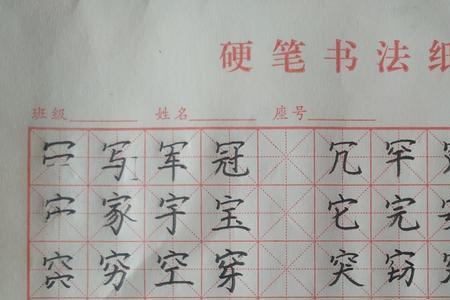 硬笔书法纸
班级 姓名 座号
冖 写 军 冠 冗 罕
宀 家 宇 宝 它 完
穴 穷 空 穿 突 窈